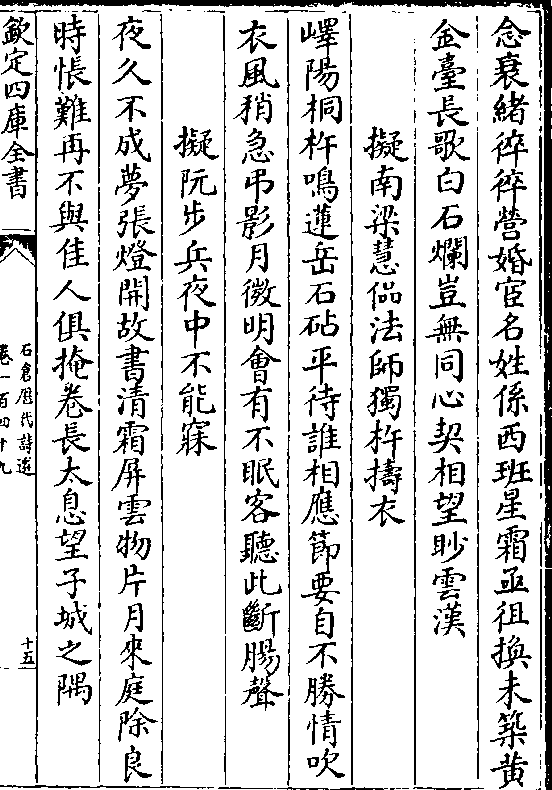 念衰緒碎碎營婚宦名姓係西班星霜亟徂換未築黄
金臺長歌白石爛豈無同心契相望眇雲漢
擬南梁慧偘法師獨杵擣衣
嶧陽桐杵鳴蓮岳石砧平待誰相應節要自不勝情吹
衣風稍急弔影月微明會有不眠客聽此斷腸聲
擬阮步兵夜中不能寐
夜久不成夢張燈開故書清霜屏雲物片月來庭除良
時悵難再不與佳人俱掩卷長太息望子城之隅
欽定四庫全書
石倉歷代詩選
卷一百四十九
十五